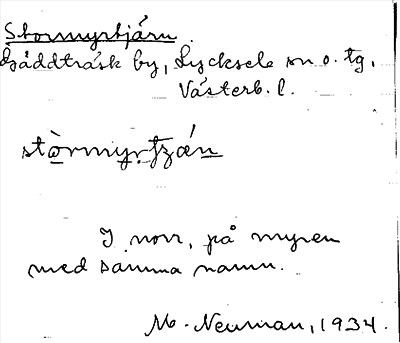 Stormyrtjärn.
Gäddträsk by, Lycksele sn o. tg,
Västerb. l.
stòrmyr.tjǽn
I norr, på myren
med samma namn.
M. Neuman, 1934.